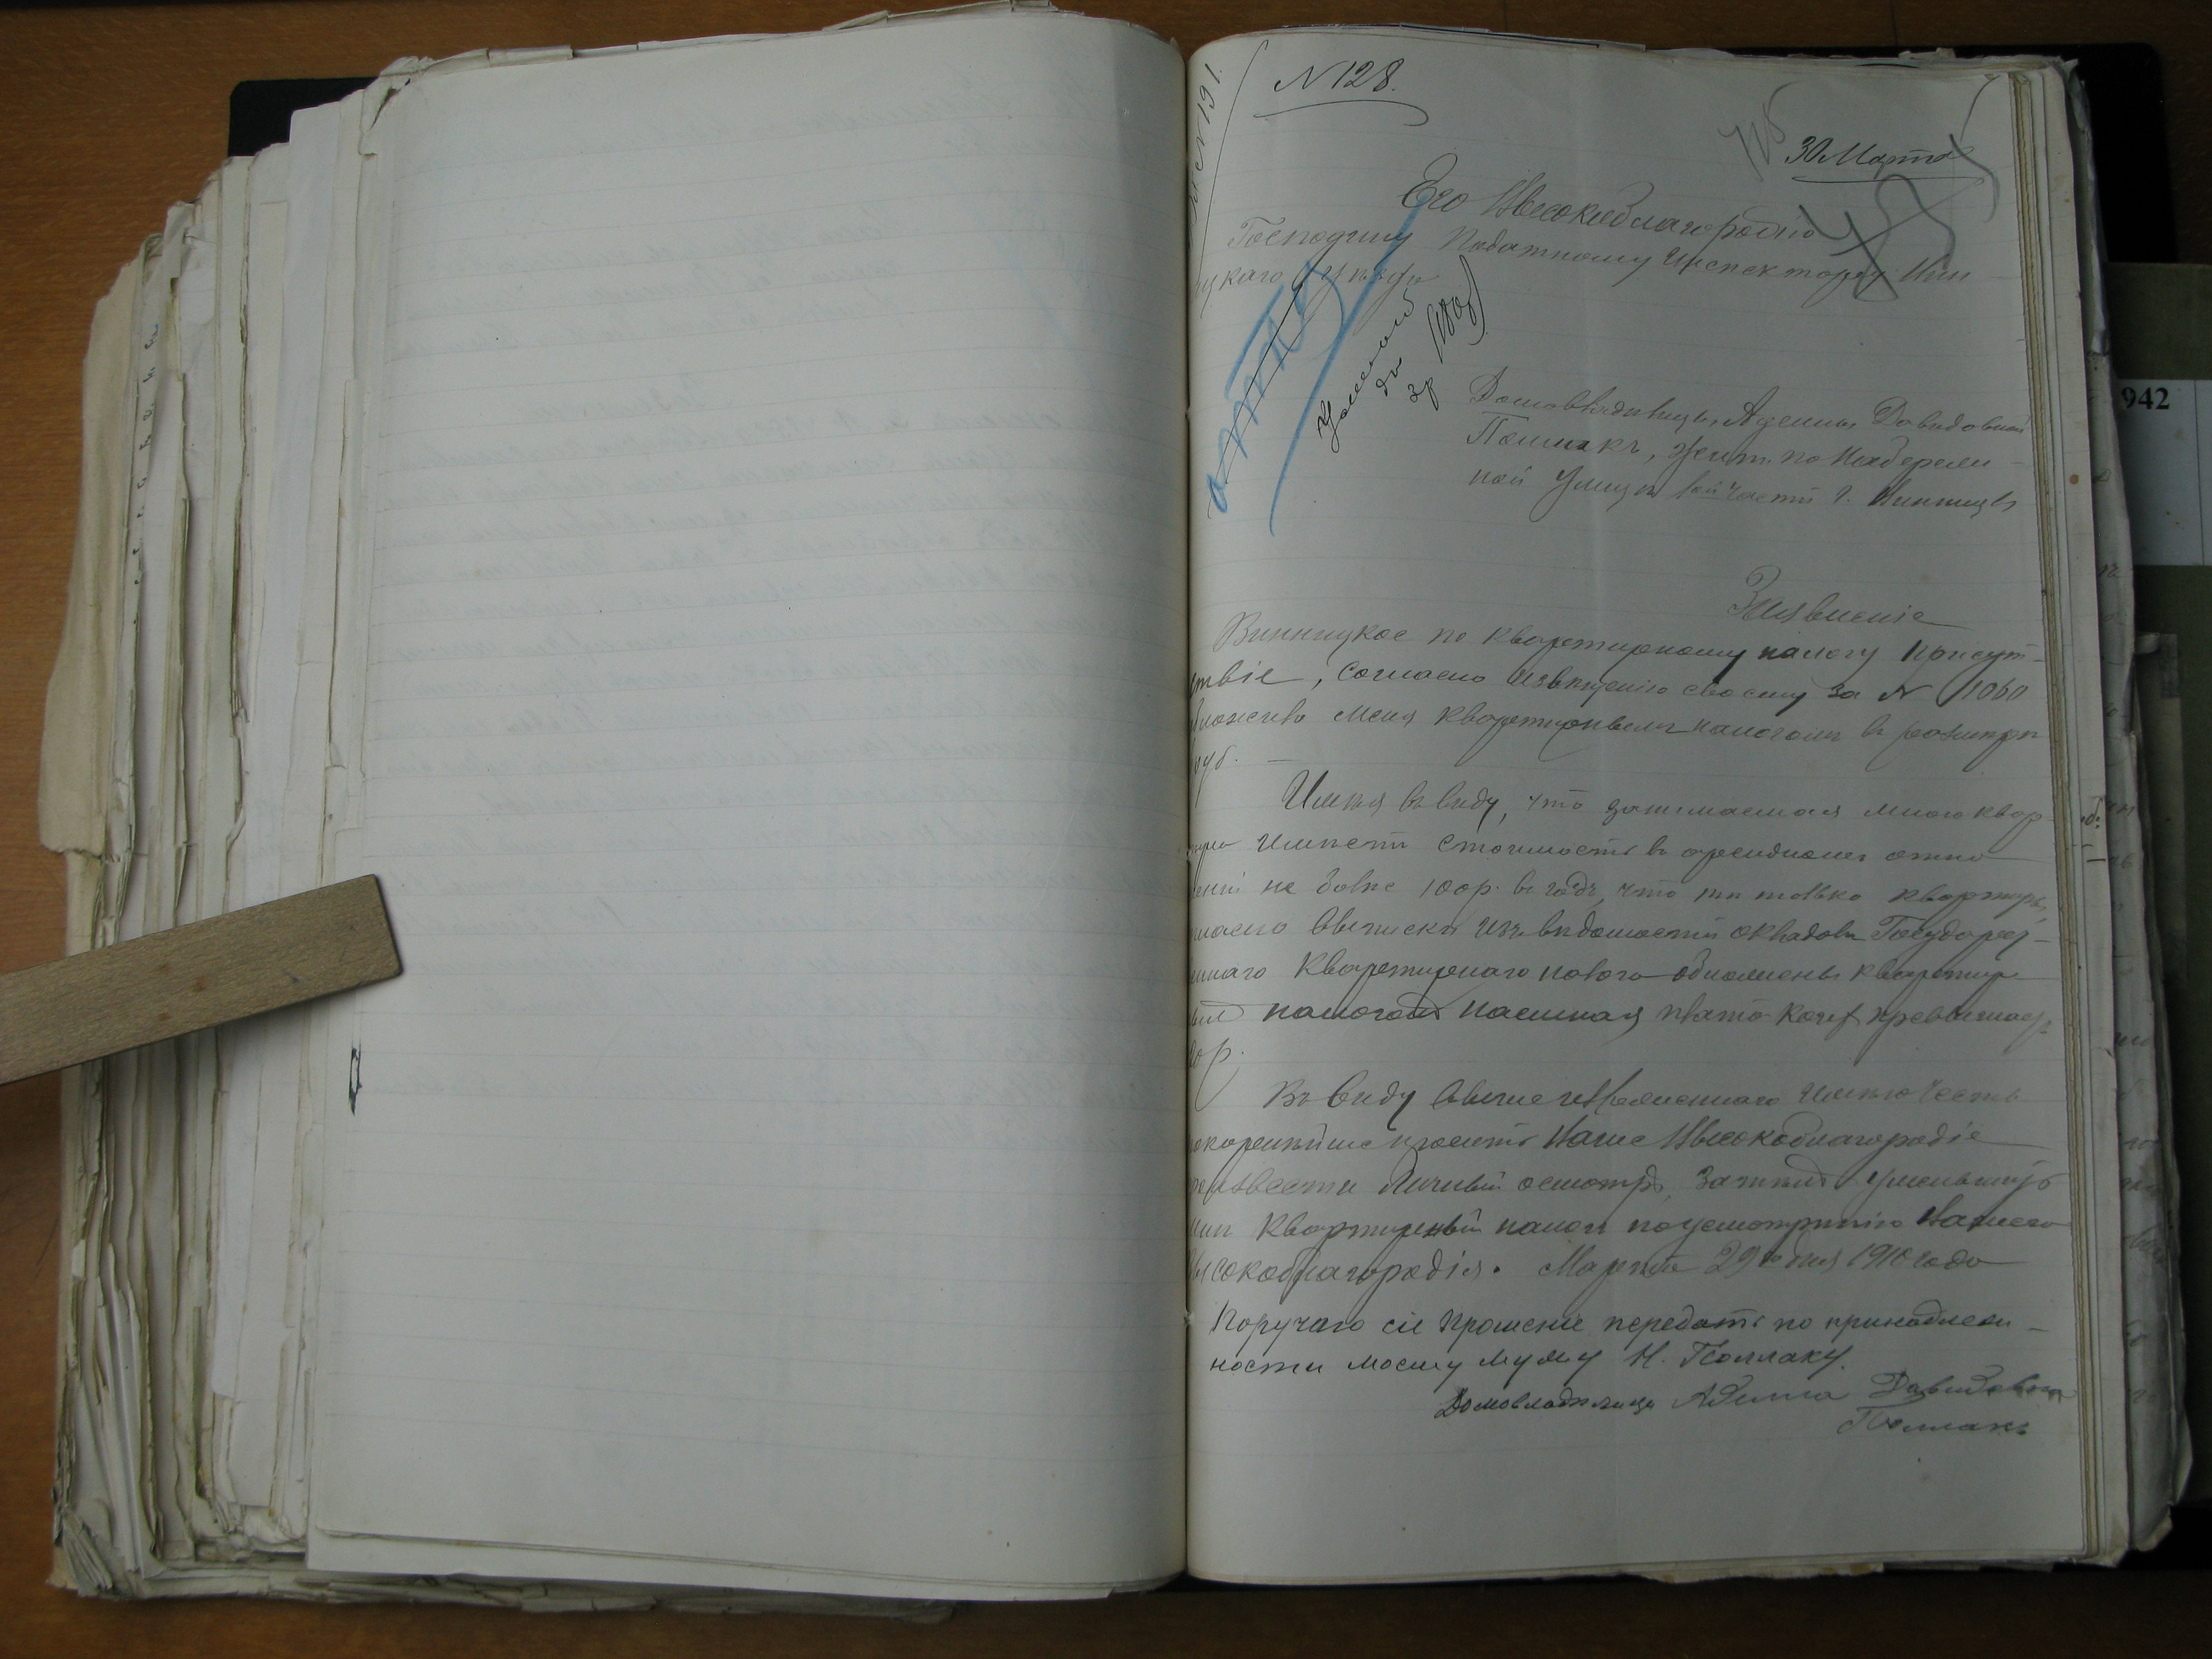 N 128.
30 Марта
Его Высокоблагородію
Господину Податному Инспектору Вин
ицкаго уѣзда
Домовладѣлицы Аделии Давидовной
Поллакъ, жит. по
ной улицѣ части г. Винницы
Заявленіе
Винницкое по квартирному налогу Присут-
ствіе, согласно извѣщенію своему за N 1060
бложило меня квартирнымъ налогомъ въ размѣрѣ
руб.
Имѣя въ виду, что занимаемая мною квар-
тира имѣетъ стоимость въ арендномъ отно
еніи не болѣе 100 р. въ годъ, что тѣ только квартиры,
гласно выписки изъ вѣдомости окладовъ Государст-
еннаго квартирнаго налога обложены квартир
ымъ налогомъ наемная плата коихъ превышаетъ
р.
Въ виду вышеизложеннаго имѣю честь
окорнѣйше просить Ваше Высокоблагородіе
роизвести личный осмотръ, затѣмъ уменьшить
мнѣ квартирный налогъ по усмотрѣнію Вашего
Высокоблагородія. Марта 29 го дня 1910 года
Поручаю сіе прошеніе передать по принадлеж-
ности моему мужу Н. Поллаку.
Домовладѣлица Аделия Давидовна
Поллакъ
942